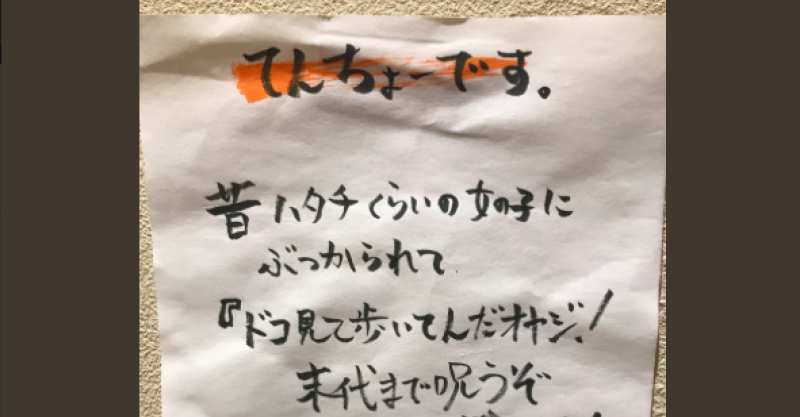 てんちょーです。
昔ハタチくらいの女の子に
ぶつかられて
『ドコ見て歩いてんだオヤジ!
末代まで呪うぞ